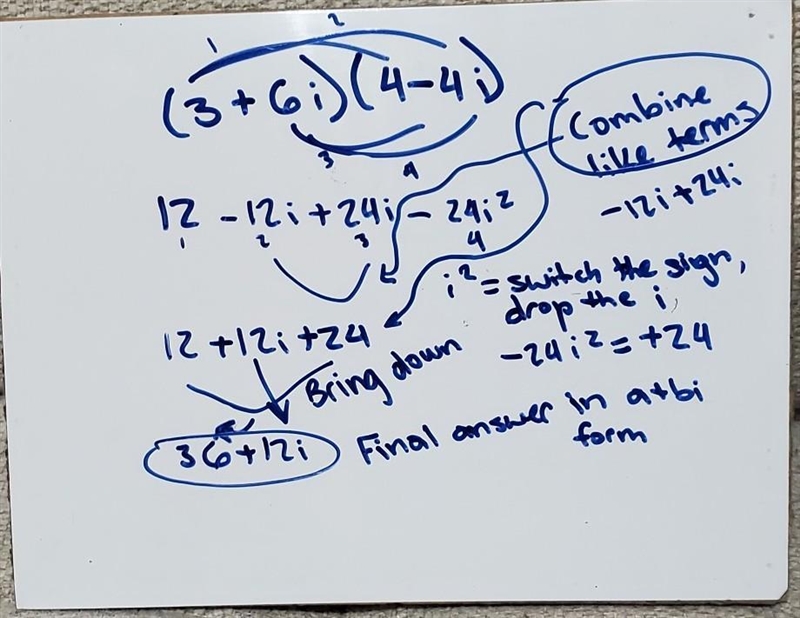 1 2
(3 + 6i)(4 - 4i)
3 4
Combine
like terms
-12i + 24i
12 - 12i + 24i - 24i²
1 2 3 4
i² = switch the sign,
drop the i,
-24i² = +24
12 + 12i + 24
Bring down
36 + 12i
Final answer in a+bi
form